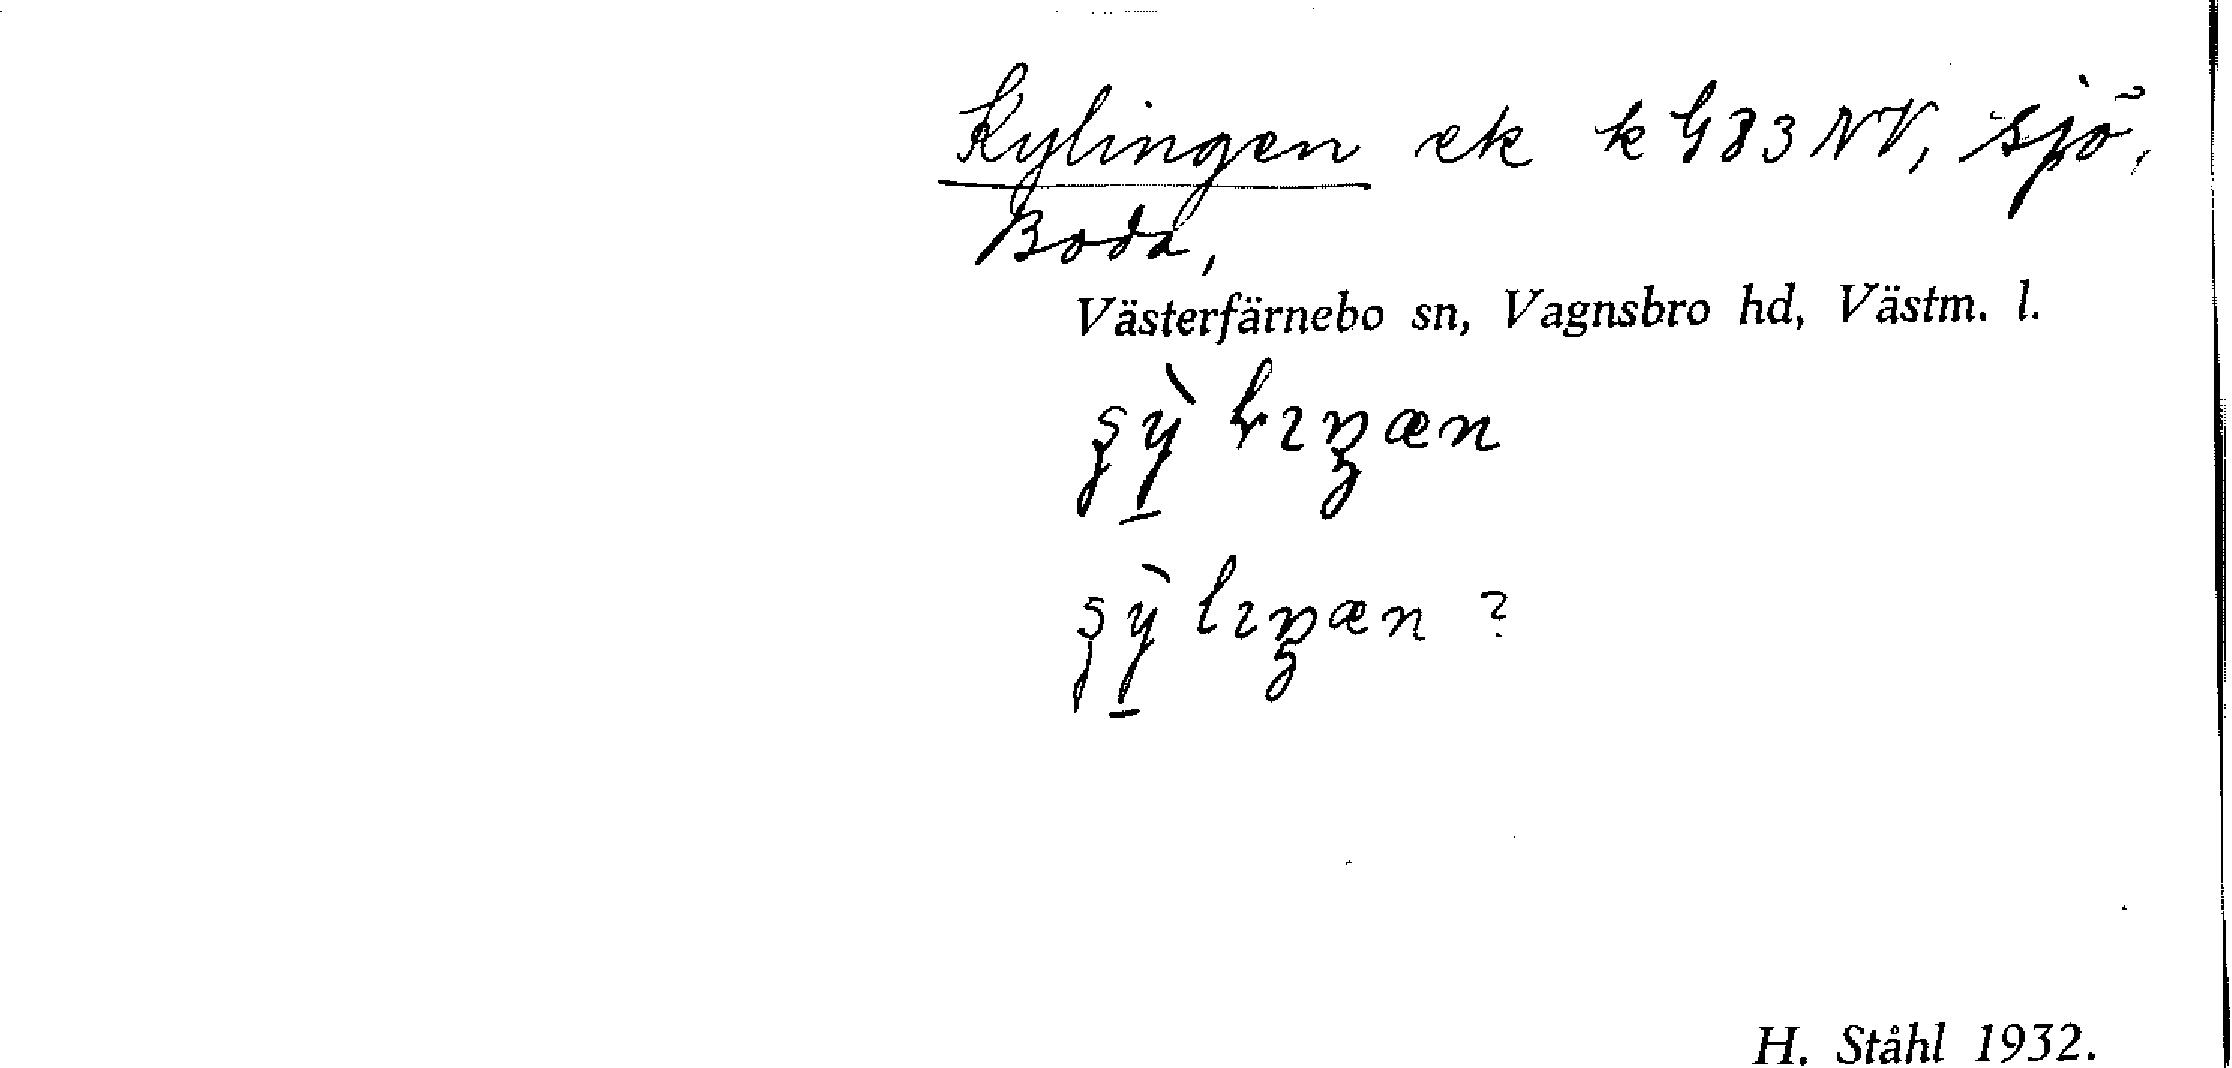 Kylingen ek k G83 NV, sjö,
Boda,
Västerfärnebo sn, Vagnsbro hd, Västm. l.
?
H. Ståhl 1932.